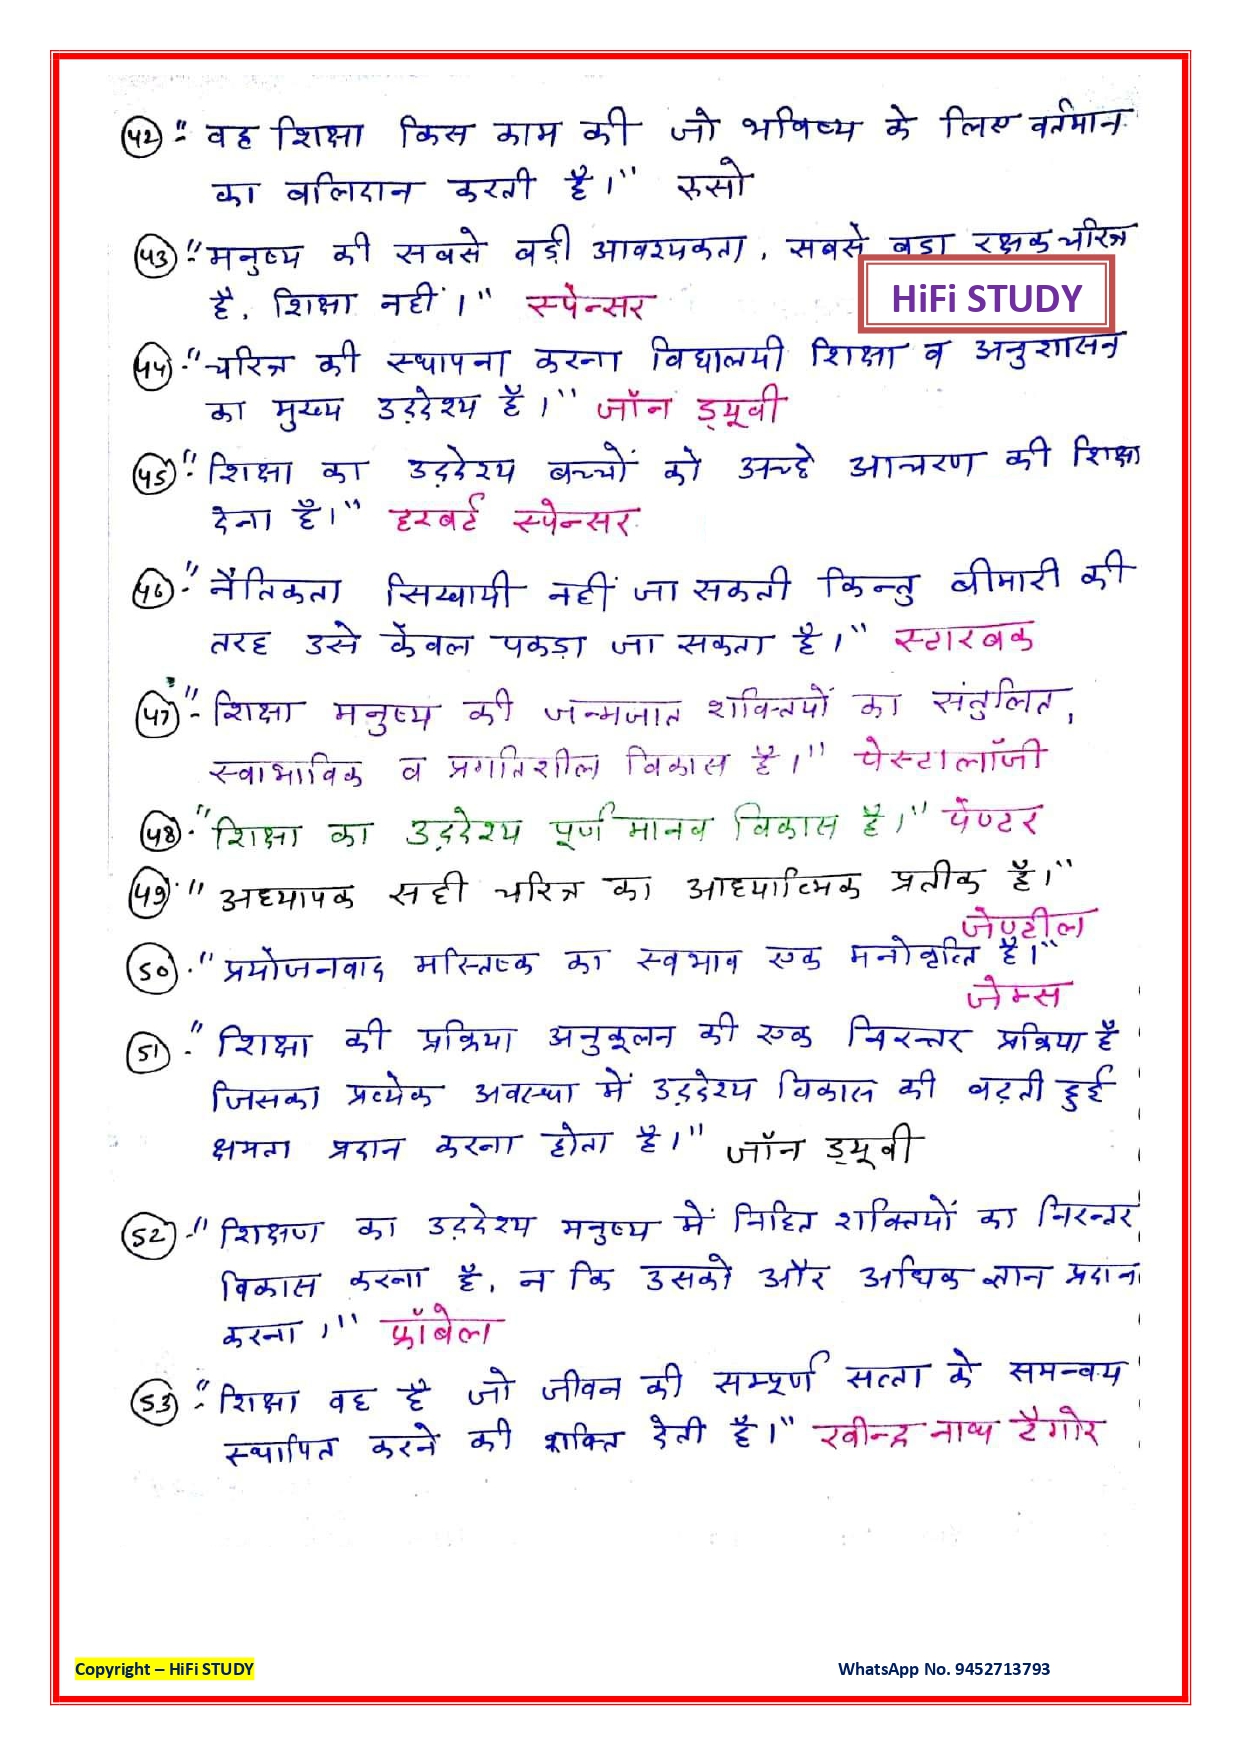 42 - "वह शिक्षा किस काम की जो भविष्य के लिए वर्तमान
का बलिदान करती है।" रुसो
43 - "मनुष्य की सबसे बड़ी आवश्यकता, सबसे बड़ा रक्षक चरित्र
है, शिक्षा नहीं।" स्पेन्सर
HiFi STUDY
44 - "चरित्र की स्थापना करना विद्यालयी शिक्षा व अनुशासन
का मुख्य उद्देश्य है।" जॉन ड्यूवी
45 - "शिक्षा का उद्देश्य बच्चों को अच्छे आचरण की शिक्षा
देना है।" हरबर्ट स्पेन्सर
46 - "नैतिकता सिखायी नहीं जा सकती किन्तु बीमारी की
तरह उसे केवल पकड़ा जा सकता है।" स्टारबक
47 - "शिक्षा मनुष्य की जन्मजात शक्तियों का संतुलित,
स्वाभाविक व प्रगतिशील विकास है।" पेस्टालॉजी
48 - "शिक्षा का उद्देश्य पूर्ण मानव विकास है।" पेण्टर
49 - "अध्यापक सही चरित्र का आध्यात्मिक प्रतीक है।"
जेण्टील
50 - "प्रयोजनवाद मस्तिष्क का स्वभाव एक मनोवृत्ति है।"
जेम्स
51 - "शिक्षा की प्रक्रिया अनुकूलन की एक निरन्तर प्रक्रिया है
जिसका प्रत्येक अवस्था में उद्देश्य विकास की बढ़ती हुई
क्षमता प्रदान करना होता है।" जॉन ड्यूवी
52 - "शिक्षण का उद्देश्य मनुष्य में निहित शक्तियों का निरन्तर
विकास करना है, न कि उसको और अधिक ज्ञान प्रदान
करना।" फ्रॉबेल
53 - "शिक्षा वह है जो जीवन की सम्पूर्ण सत्ता के समन्वय
स्थापित करने की शक्ति देती है।" रवीन्द्र नाथ टैगोर
Copyright – HiFi STUDY
WhatsApp No. 9452713793